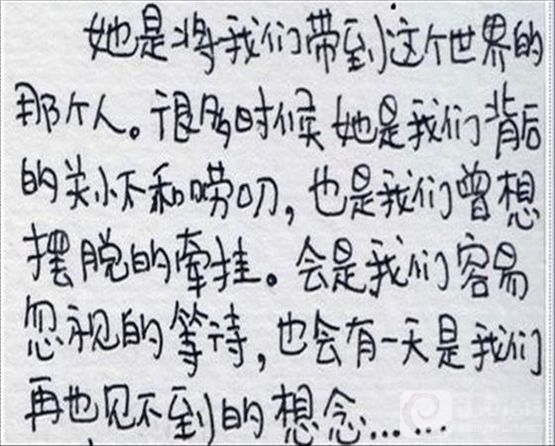 她是将我们带到这个世界的
那个人。很多时候她是我们背后
的关怀和唠叨，也是我们曾想
摆脱的牵挂。会是我们容易
忽视的等待，也会有一天是我们
再也见不到的想念……